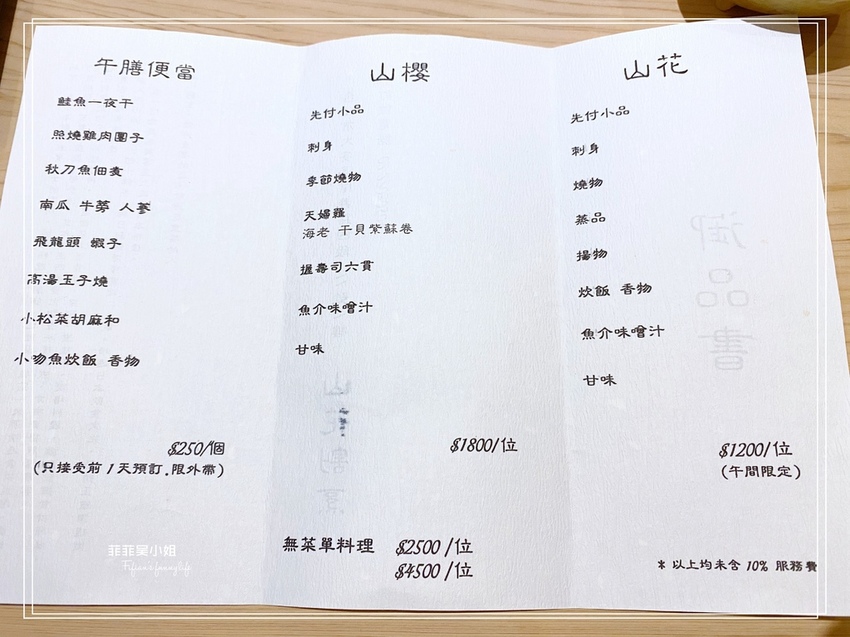 午膳便當
鮭魚一夜干
照燒雞肉團子
秋刀魚佃煮
南瓜 牛蒡 人蔘
飛龍頭 蝦子
高湯玉子燒
小松菜胡麻和
小吻魚炊飯 香物
$250/個
(只接受前1天預訂.限外帶)
山櫻
先付小品
刺身
季節燒物
天婦羅
海老 干貝紫蘇卷
握壽司六貫
魚介味噌汁
甘味
$1800/位
無菜單料理 $2500/位
$4500/位
山花
先付小品
刺身
燒物
蒸品
揚物
炊飯 香物
魚介味噌汁
甘味
$1200/位
(午間限定)
* 以上均未含 10% 服務費
御品書
山花割烹
菲菲吳小姐